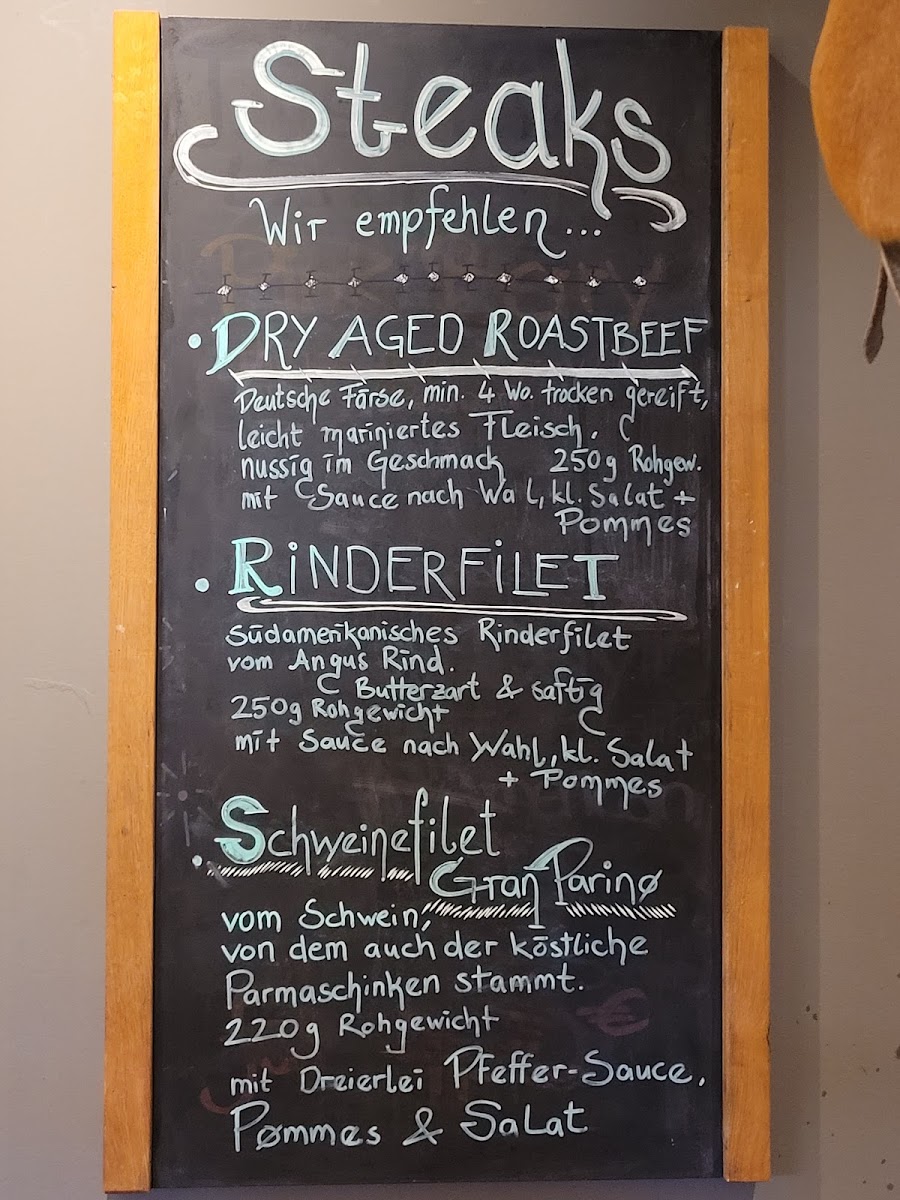 Steaks
Wir empfehlen...
• DRY AGED ROASTBEEF
Deutsche Färse, min. 4 Wo. trocken gereift,
leicht mariniertes Fleisch,
nussig im Geschmack 250g Rohgew.
mit Sauce nach Wa l, kl. Salat +
Pommes
• RINDERFILET
Südamerikanisches Rinderfilet
vom Angus Rind.
Butterzart & saftig
250g Rohgewicht
mit Sauce nach Wahl, kl. Salat
+ Pommes
• Schweinefilet
Gran Parino
vom Schwein,
von dem auch der köstliche
Parmaschinken stammt.
220g Rohgewicht
mit Dreierlei Pfeffer-Sauce,
Pommes & Salat